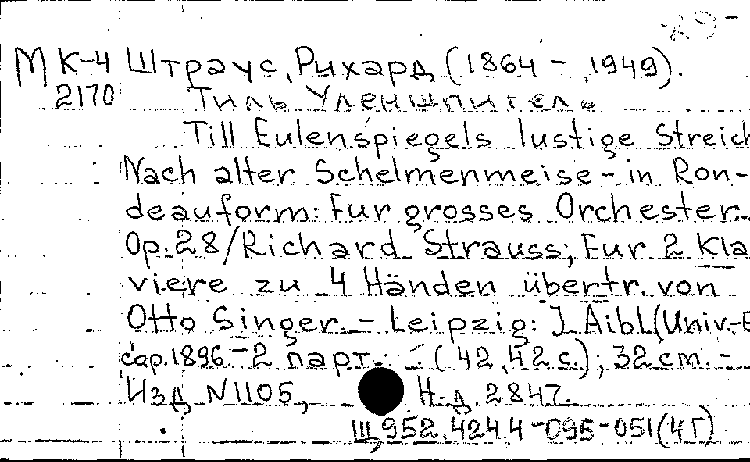 29-
М К-4 Штраус, Рихард (1864 - 1949).
2170 Тиль Уленшпигель
Till Eulenspiegels lustige Streich
Nach alter Schelmenmeise - in Ron-
deauform: Fur grosses Orchester.
Op. 28/Richard Strauss; Fur 2 Kla
viere zu 4 Händen übertr. von
Otto Singer. - Leipzig: J. Aibl (Univ.-E
cap. 1896 - 2 парт. - (42, 42 с.); 32 cm. -
Изд. N 1105, Н.д. 2847.
Щ952.4244-095-051(4Г)